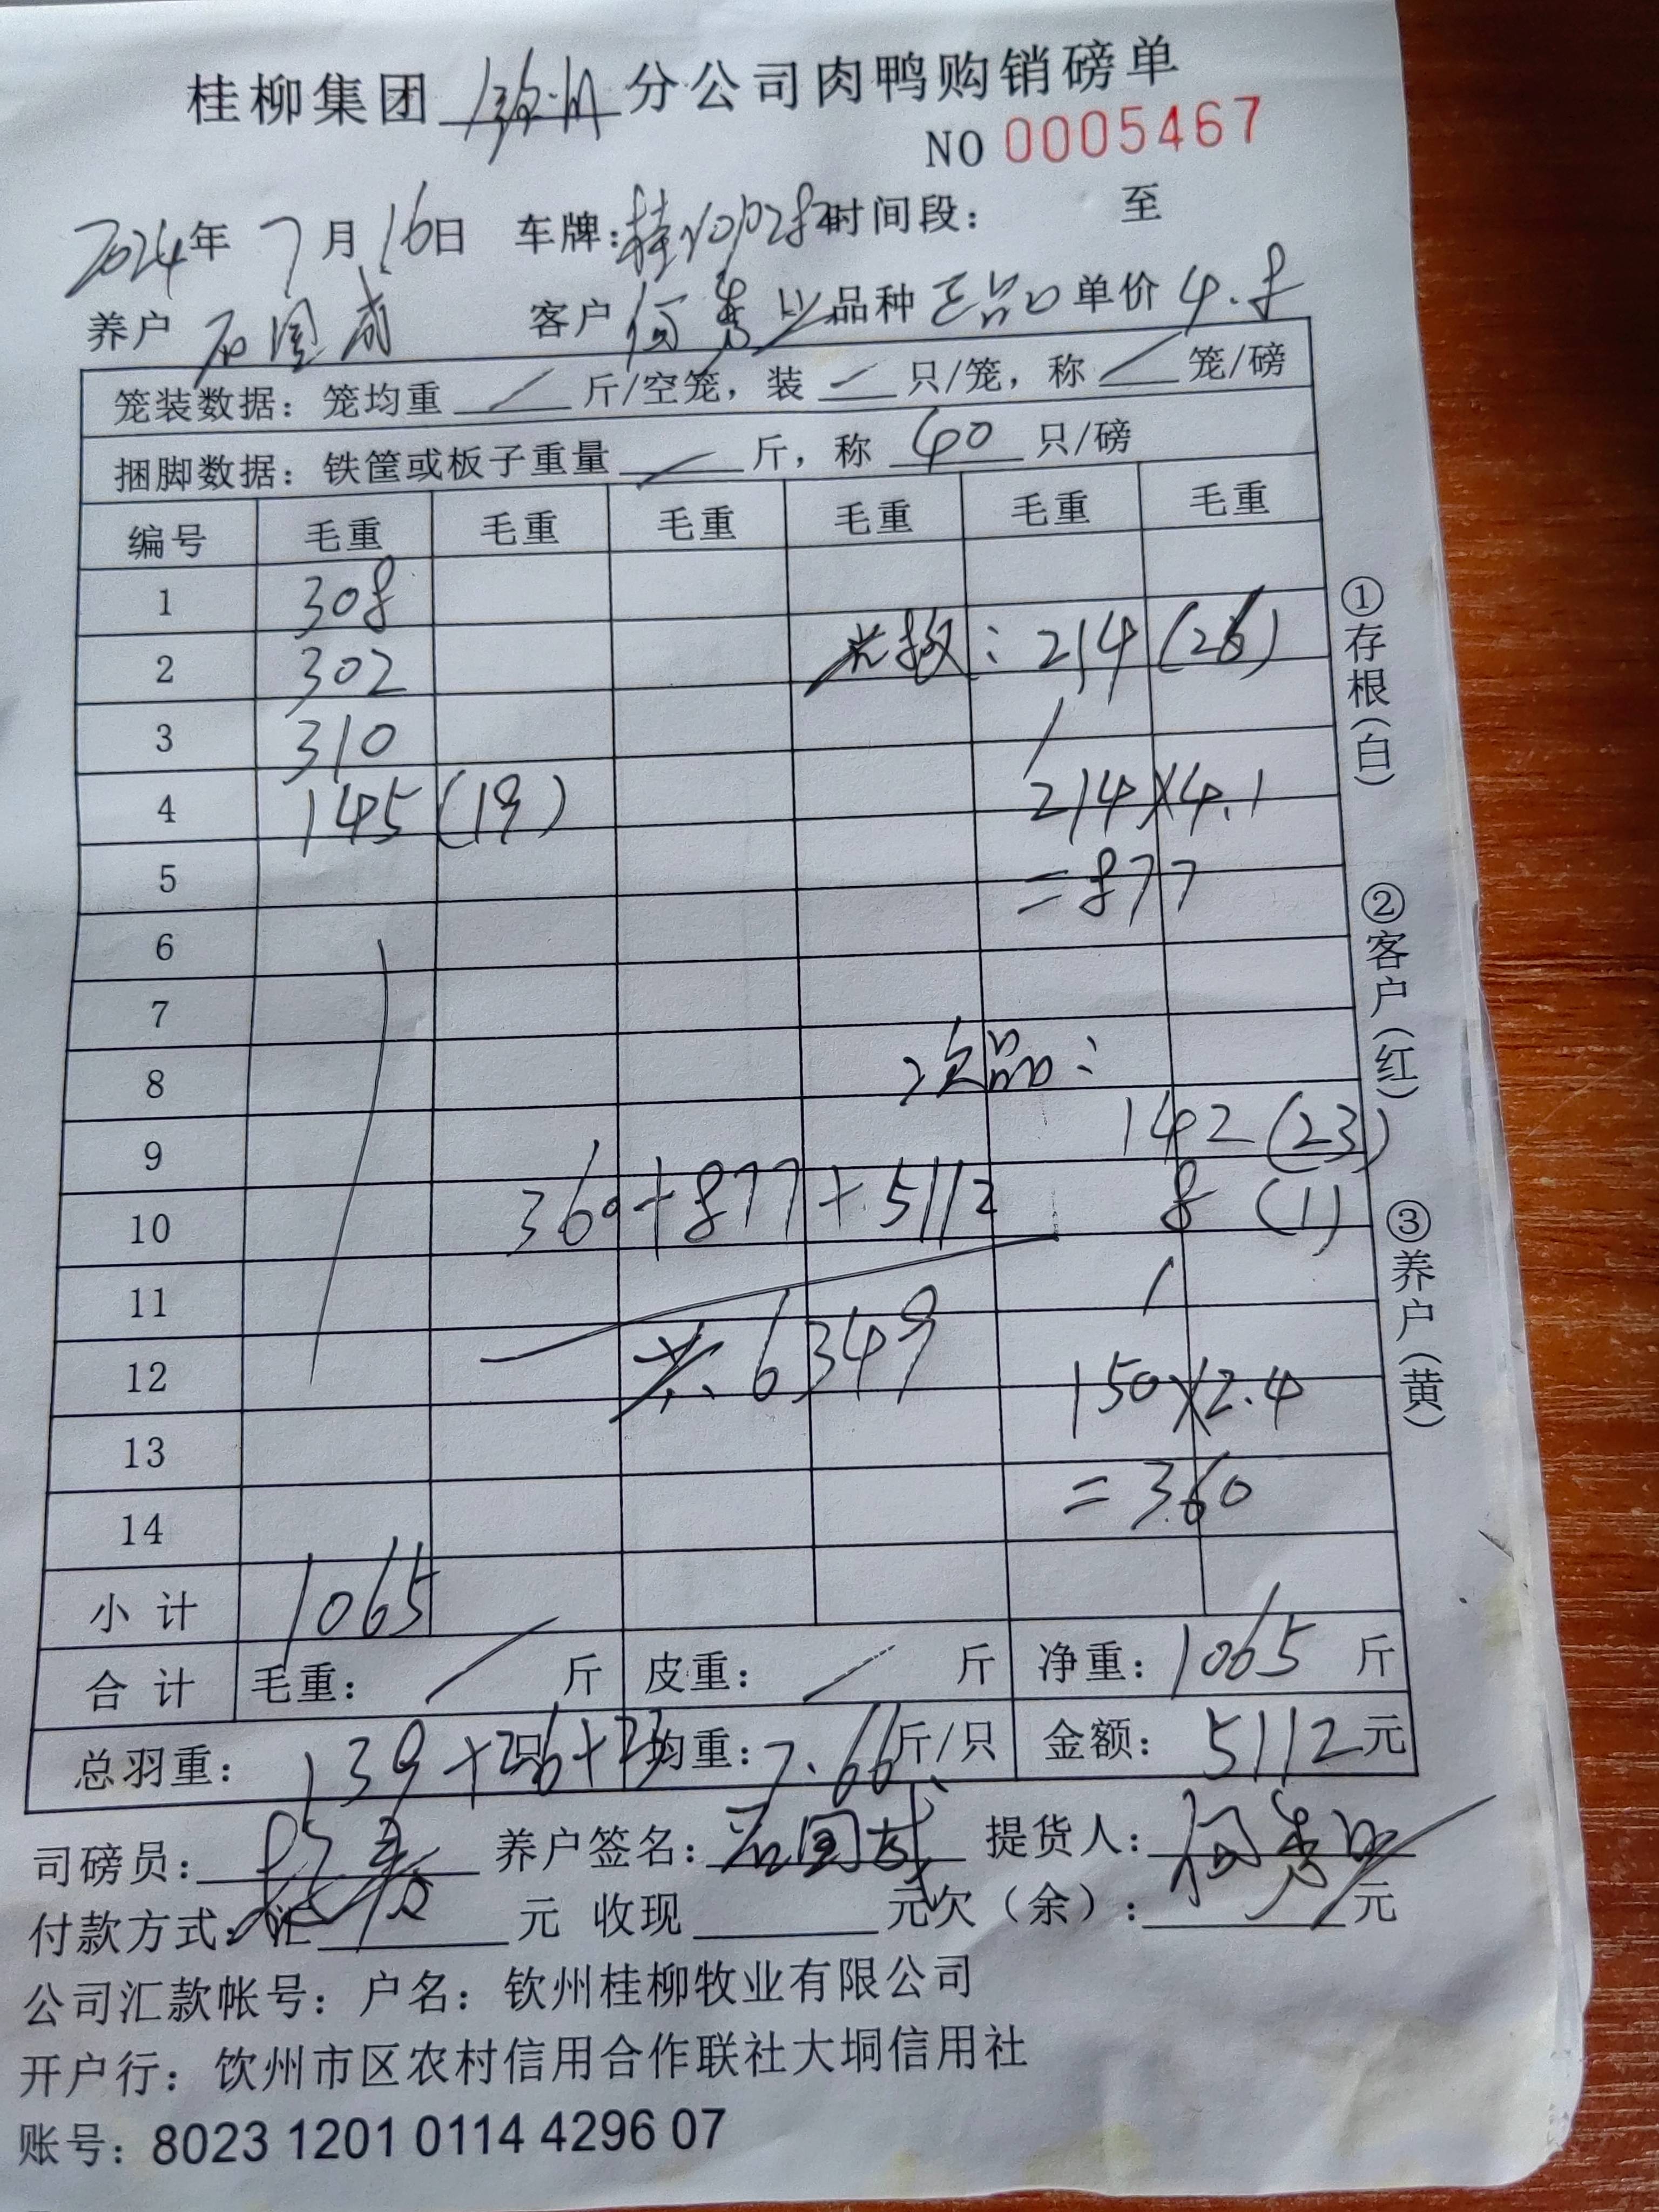 桂柳集团 钦州 分公司肉鸭购销磅单
NO 0005467
2024年 7月 16日 车牌: 时间段: 至
养户 石国成 客户 何秀 品种 正品 单价 4.8
笼装数据: 笼均重 / 斤/空笼, 装 / 只/笼, 称 / 笼/磅
捆脚数据: 铁筐或板子重量 / 斤, 称 40 只/磅
编号 毛重 毛重 毛重 毛重 毛重 毛重
1 308
2 302 : 214 (26)
3 310
4 145 (19) 214×4.1
5 =877
6
7
8 次品:
9 142 (23)
10 360+877+5112 8 (1)
11
12 共6349 150×2.4
13 =360
14
小计 1065
合计 毛重: / 斤 皮重: / 斤 净重: 1065 斤
总羽重: 139+26+23 均重: 7.66 斤/只 金额: 5112元
司磅员: 养户签名: 石国成 提货人: 何秀
付款方式: 汇 元 收现 元欠(余): 元
公司汇款帐号: 户名: 钦州桂柳牧业有限公司
开户行: 饮州市区农村信用合作联社大垌信用社
账号: 8023 1201 0114 4296 07
①存根(白)
②客户(红)
③养户(黄)